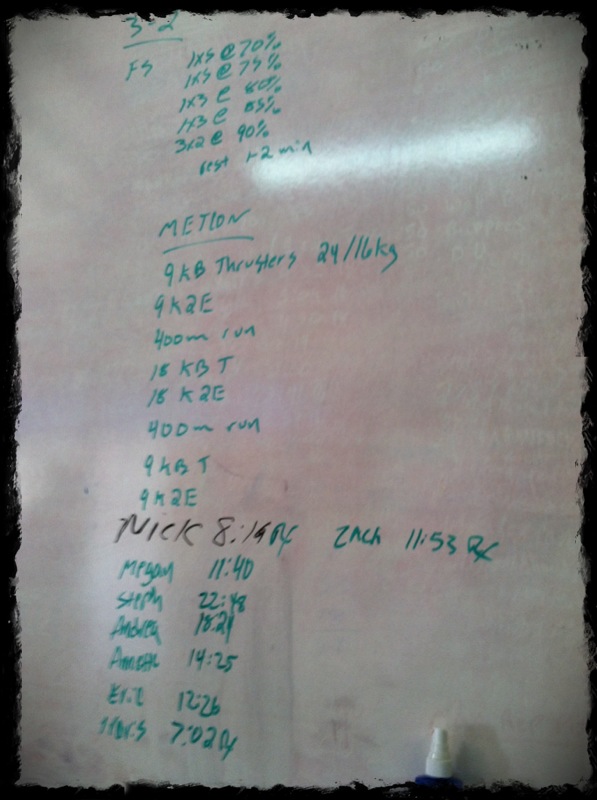 3-2
FS 1x5 @ 70%
1x5 @ 75%
1x3 @ 80%
1x3 @ 85%
3x2 @ 90%
rest 1-2 min
METCON
9 KB Thrusters 24/16kg
9 K2E
400m run
18 KB T
18 K2E
400m run
9 KB T
9 K2E
Nick 8:19 Rx Zach 11:53 Rx
Megan 11:40
Steph 22:48
Andrea 18:21
Annette 14:25
Eric 12:26
7:02 Rx